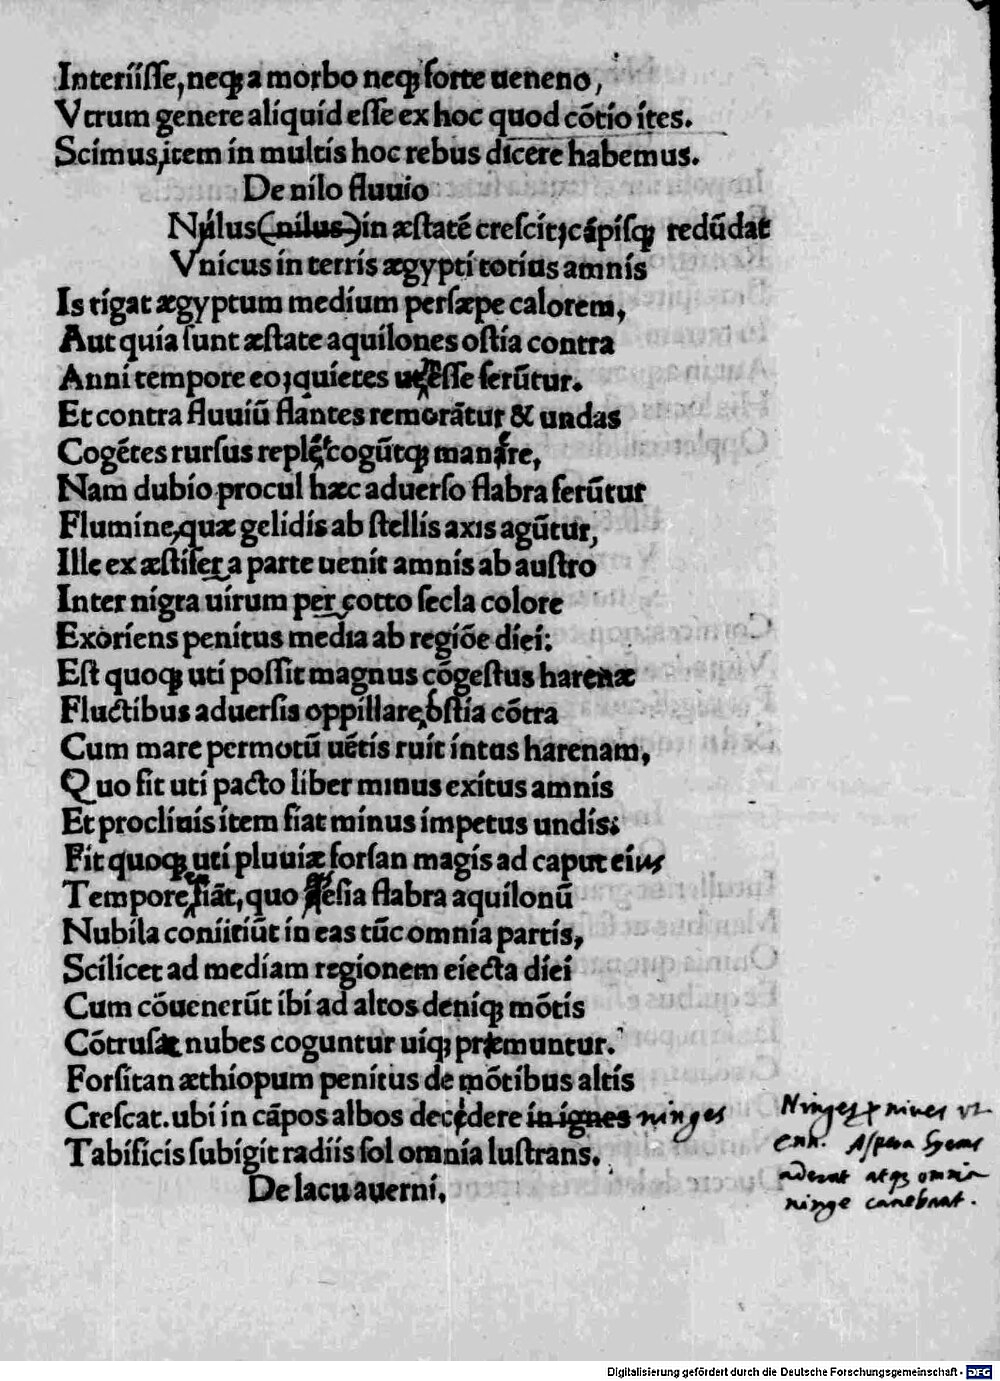 Interiisse, neqꝫ a morbo neqꝫ forte ueneno,
Vtrum genere aliquid esse ex hoc quod cõtio ites.
Scimus, item in multis hoc rebus dicere habemus.
De nilo fluuio
Nilus (nilus) in æstatẽ crescit, cápisqꝫ redũdat
Vnicus in terris ægypti totius amnis
Is rigat ægyptum medium persæpe calorem,
Aut quia sunt æstate aquilones ostia contra
Anni tempore eo, quietes esse ferũtur.
Et contra fluuiũ flantes remorãtur & undas
Cogẽtes rursus replẽt cogũtqꝫ manare,
Nam dubio procul hæc aduerso flabra ferũtur
Flumine, quæ gelidis ab stellis axis agũtur,
Ille ex æstifera parte uenit amnis ab austro
Inter nigra uirum percocto secla colore
Exoriens penitus media ab regiõe diei:
Est quoqꝫ uti possit magnus cõgestus harenæ
Fluctibus aduersis oppillare ostia cõtra
Cum mare permotũ uẽtis ruit intus harenam,
Quo fit uti pacto liber minus exitus amnis
Et procliuis item fiat minus impetus undis:
Fit quoqꝫ uti pluuiæ forsan magis ad caput eius
Tempore fiãt, quo etesia flabra aquilonũ
Nubila coniiciũt in eas tũc omnia partis,
Scilicet ad mediam regionem eiecta diei
Cum cõuenerũt ibi ad altos deniqꝫ mõtis
Cõtrusæ nubes coguntur uiqꝫ præmuntur.
Forsitan æthiopum penitus de mõtibus altis
Crescat. ubi in cãpos albos decedere in ignes ninges
Tabificis subigit radiis sol omnia lustrans.
De lacu auerni.
Ninges p niues vt
enn. Aspera hyems
aderat atqꝫ omnia
ninge canebant.
Digitalisierung gefördert durch die Deutsche Forschungsgemeinschaft - DFG